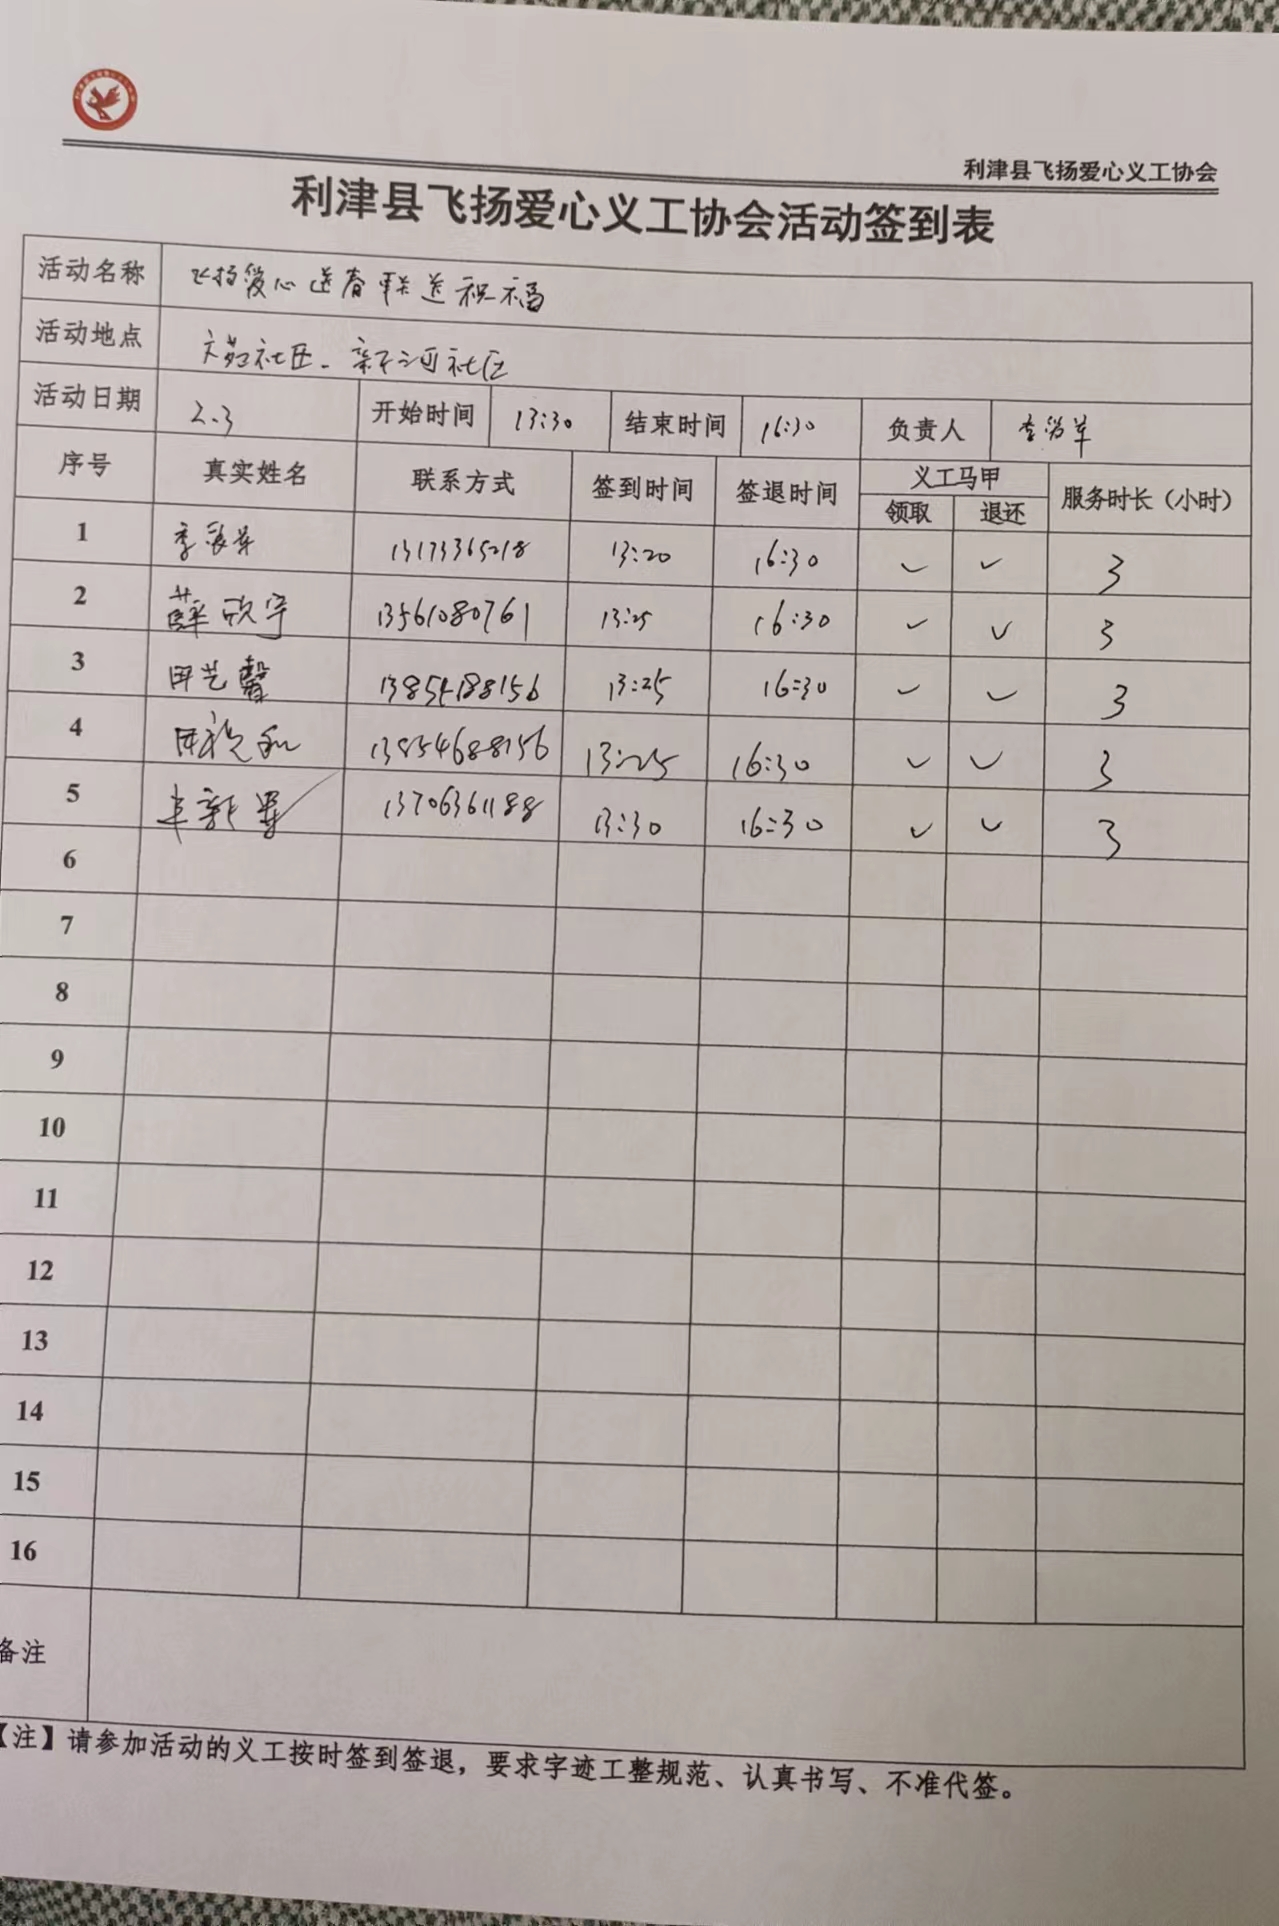 利津县飞扬爱心义工协会
利津县飞扬爱心义工协会活动签到表
活动名称 飞扬爱心送春联送祝福
活动地点 社区、新河社区
活动日期 2.3 开始时间 13:30 结束时间 16:30 负责人 李
序号 真实姓名 联系方式 签到时间 签退时间 义工马甲 服务时长（小时）
领取 退还
1 李 13173365218 13:20 16:30 ✓ ✓ 3
2 薛欣宇 13561080761 13:25 16:30 ✓ ✓ 3
3 田艺馨 13854188156 13:25 16:30 ✓ ✓ 3
4 13854688156 13:25 16:30 ✓ ✓ 3
5 新 13706361188 13:30 16:30 ✓ ✓ 3
6
7
8
9
10
11
12
13
14
15
16
备注
【注】请参加活动的义工按时签到签退，要求字迹工整规范、认真书写、不准代签。